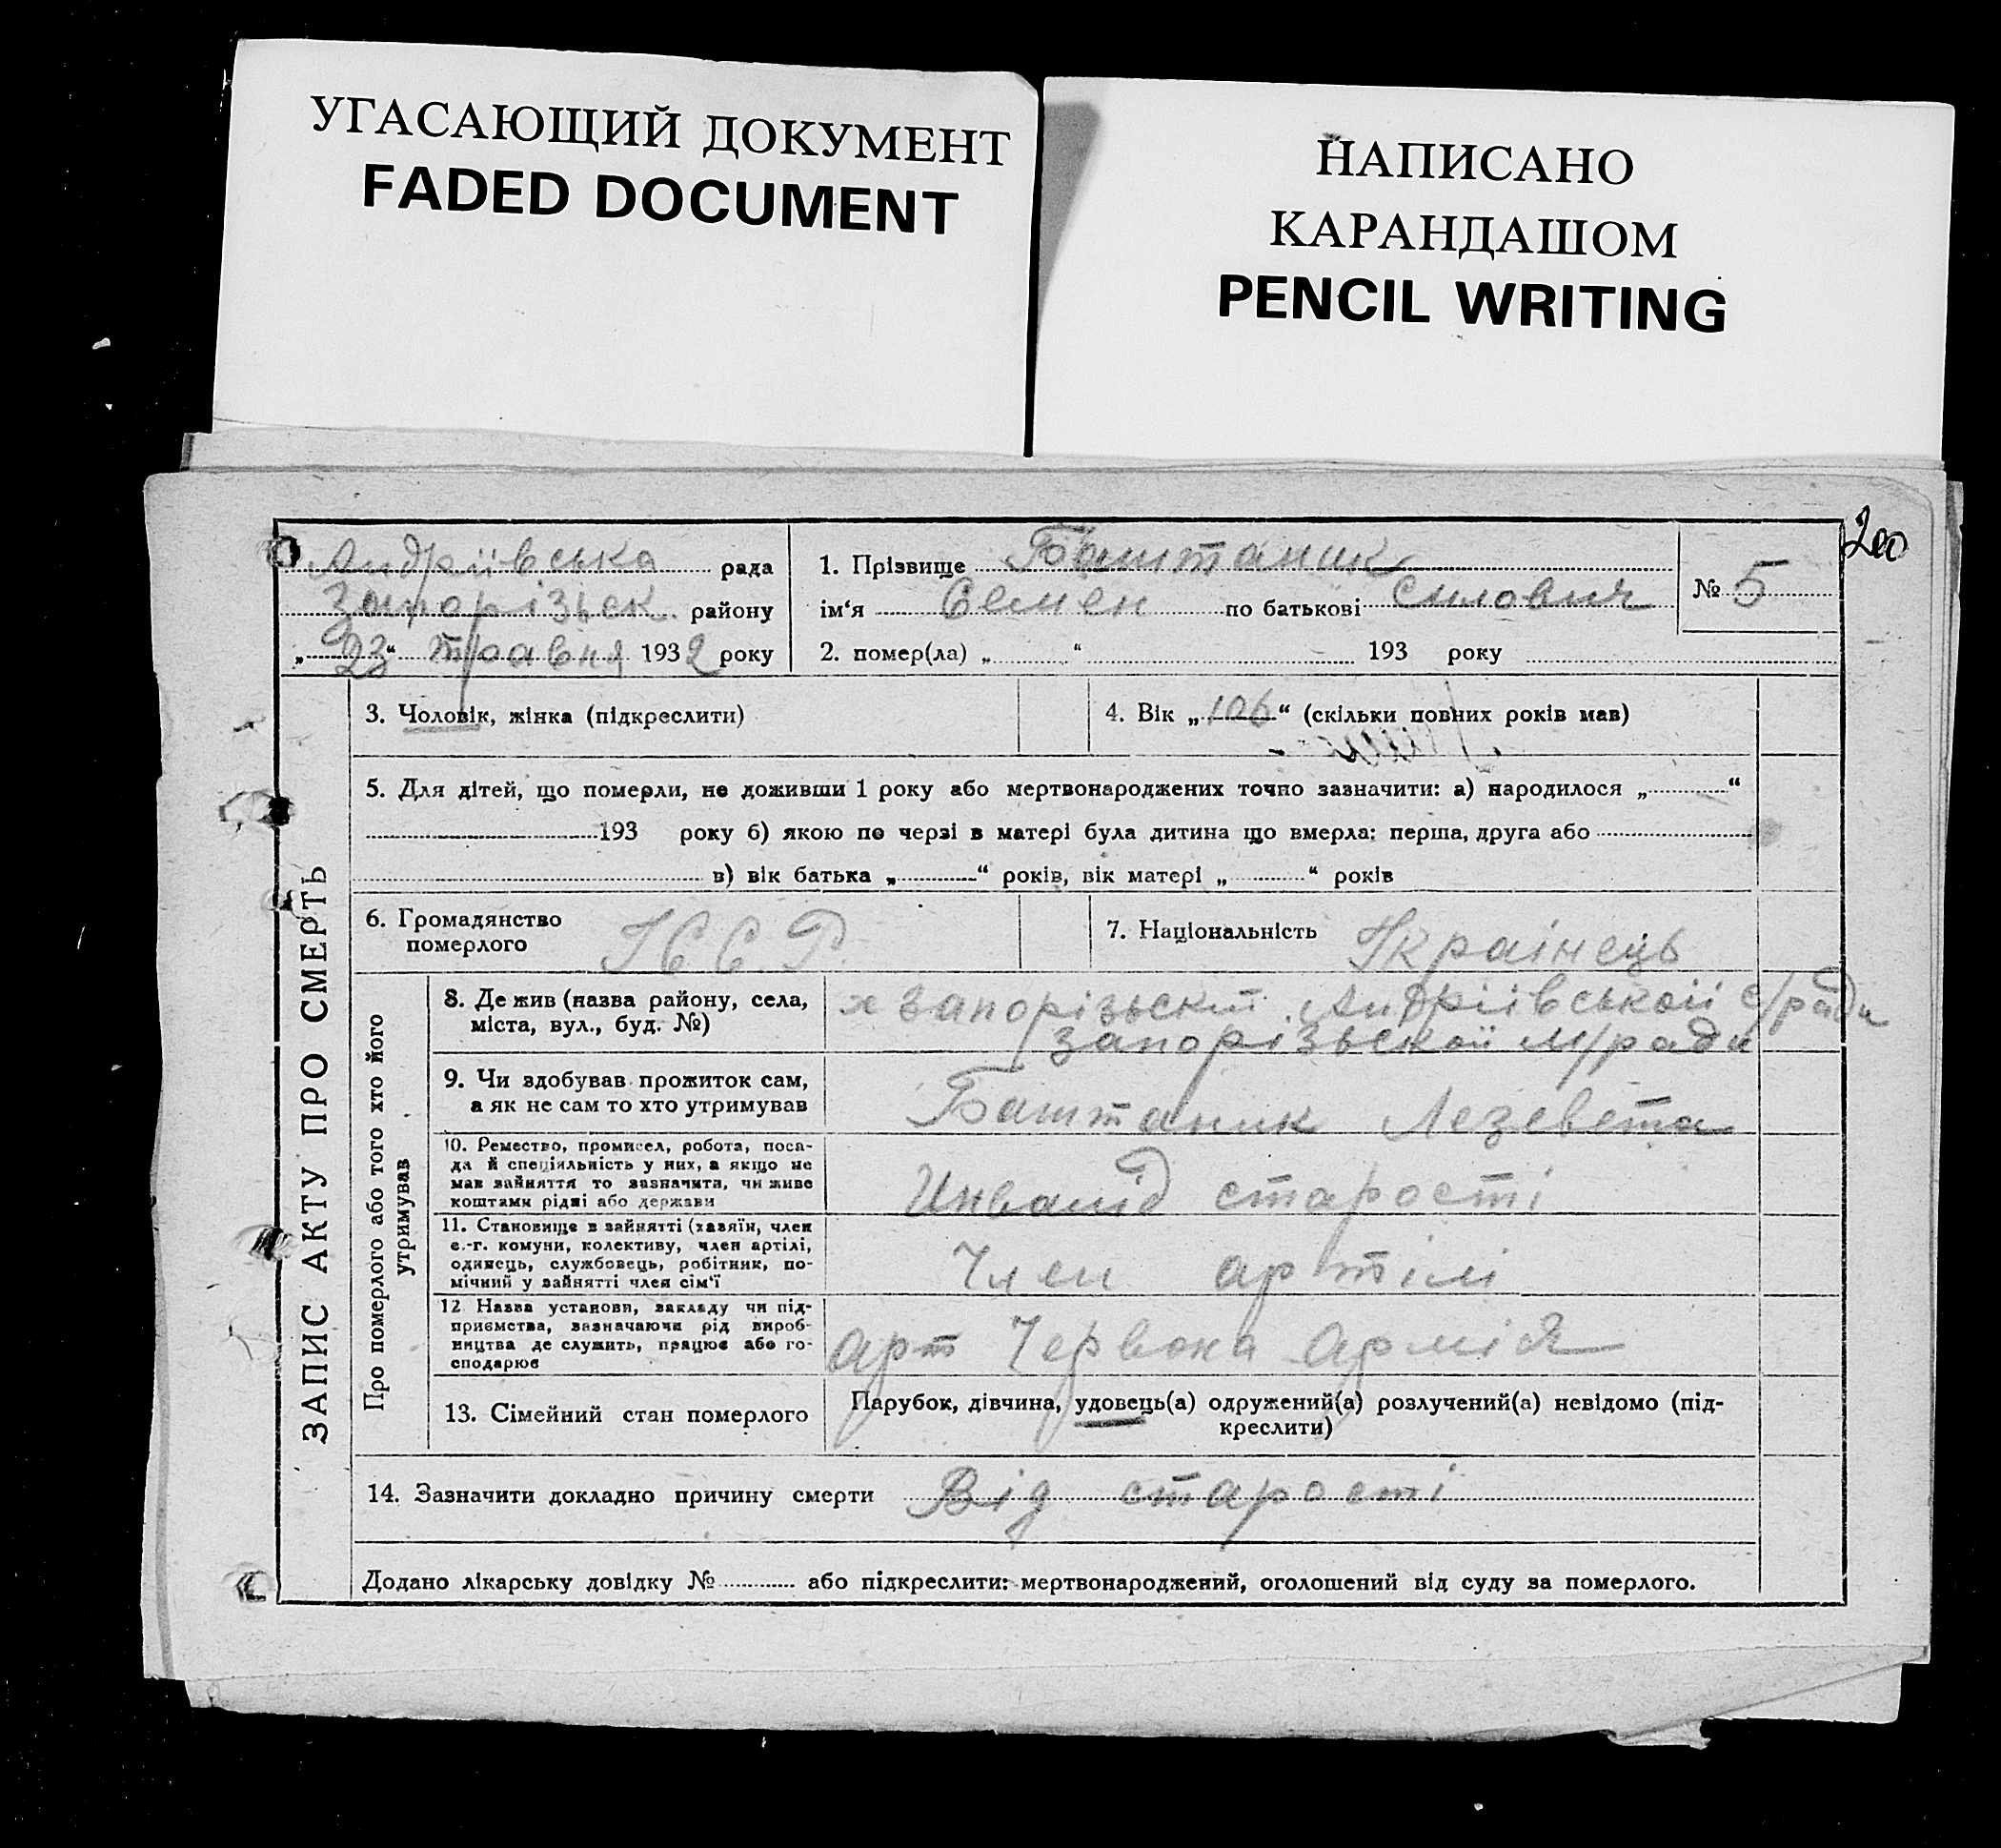 УГАСАЮЩИЙ ДОКУМЕНТ
FADED DOCUMENT
НАПИСАНО
КАРАНДАШОМ
PENCIL WRITING
200
Андріївська рада
Запорізьк. району
„23“ травня 1932 року
1. Прізвище Баштаник
ім‘я Семен по батькові Силович
2. помер(ла) „ “ 193 року
№ 5
ЗАПИС АКТУ ПРО СМЕРТЬ
3. Чоловік, жінка (підкреслити)
4. Вік „106“ (скільки повних років мав)
5. Для дітей, що померли, не доживши 1 року або мертвонароджених точно зазначити: а) народилося „ “
193 року б) якою по черзі в матері була дитина що вмерла: перша, друга або
в) вік батька „ “ років, вік матері „ “ років
6. Громадянство
померлого
УССР
7. Національність Українець
Про померлого або того хто його
утримував
8. Де жив (назва району, села,
міста, вул., буд. №)
Андріївськоїі с/ради
Запорізьскої м/ради
9. Чи здобував прожиток сам,
а як не сам то хто утримував
Баштаник Лезевета
10. Ремество, промисел, робота, поса-
да й спеціяльність у них, а якщо не
мав зайняття то зазначити, чи живе
коштами рідні або держави
Инвалід старості
11. Становище в зайнятті (хазяїн, член
с.-г. комуни, колективу, член артілі,
одинець, службовець, робітник, по-
мічний у зайнятті член сім‘ї
Член артілі
12 Назва установи, закладу чи під-
приємства, зазначаючи рід вироб-
ництва де служить, працює або го-
сподарює
арт Червона Армія
13. Сімейний стан померлого
Парубок, дівчина, удовець(а) одружений(а) розлучений(а) невідомо (під-
креслити)
14. Зазначити докладно причину смерти Від старості
Додано лікарську довідку № або підкреслити: мертвонароджений, оголошений від суду за померлого.